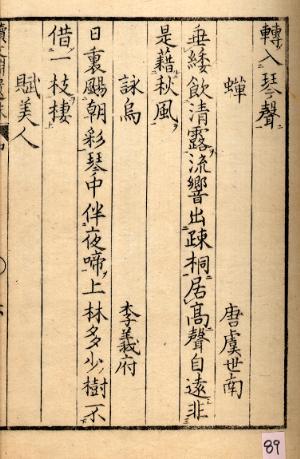 轉入琴聲
蟬　唐虞世南
垂緌飲清露流響出踈桐居高聲自遠非
是藉秋風
詠烏　李義府
日裏颺朝彩琴中伴夜啼上林多少樹不
借一枝棲
賦美人
89